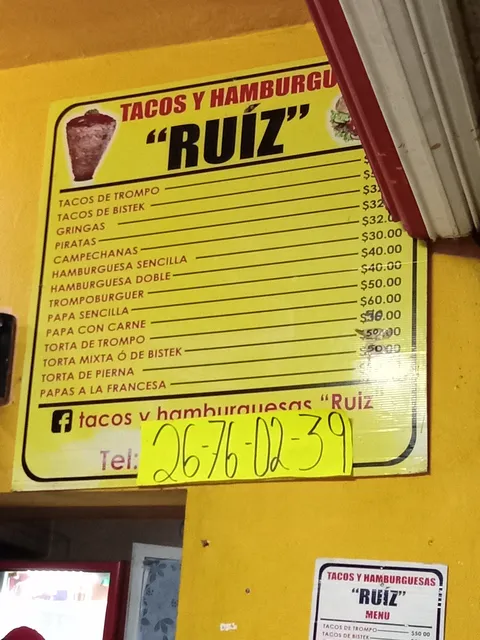 TACOS Y HAMBURGU
"RUÍZ"
TACOS DE TROMPO
TACOS DE BISTEK
GRINGAS
PIRATAS $32
CAMPECHANAS $32.0
HAMBURGUESA SENCILLA $30.00
HAMBURGUESA DOBLE $40.00
TROMPOBURGUER $40.00
PAPA SENCILLA $50.00
PAPA CON CARNE $60.00
TORTA DE TROMPO
TORTA MIXTA Ó DE BISTEK
TORTA DE PIERNA
PAPAS A LA FRANCESA
tacos y hamburguesas "Ruiz"
Tel: 26-76-02-39
TACOS Y HAMBURGUESAS
"RUÍZ"
MENU
TACOS DE TROMPO
TACOS DE BISTEK $50 00